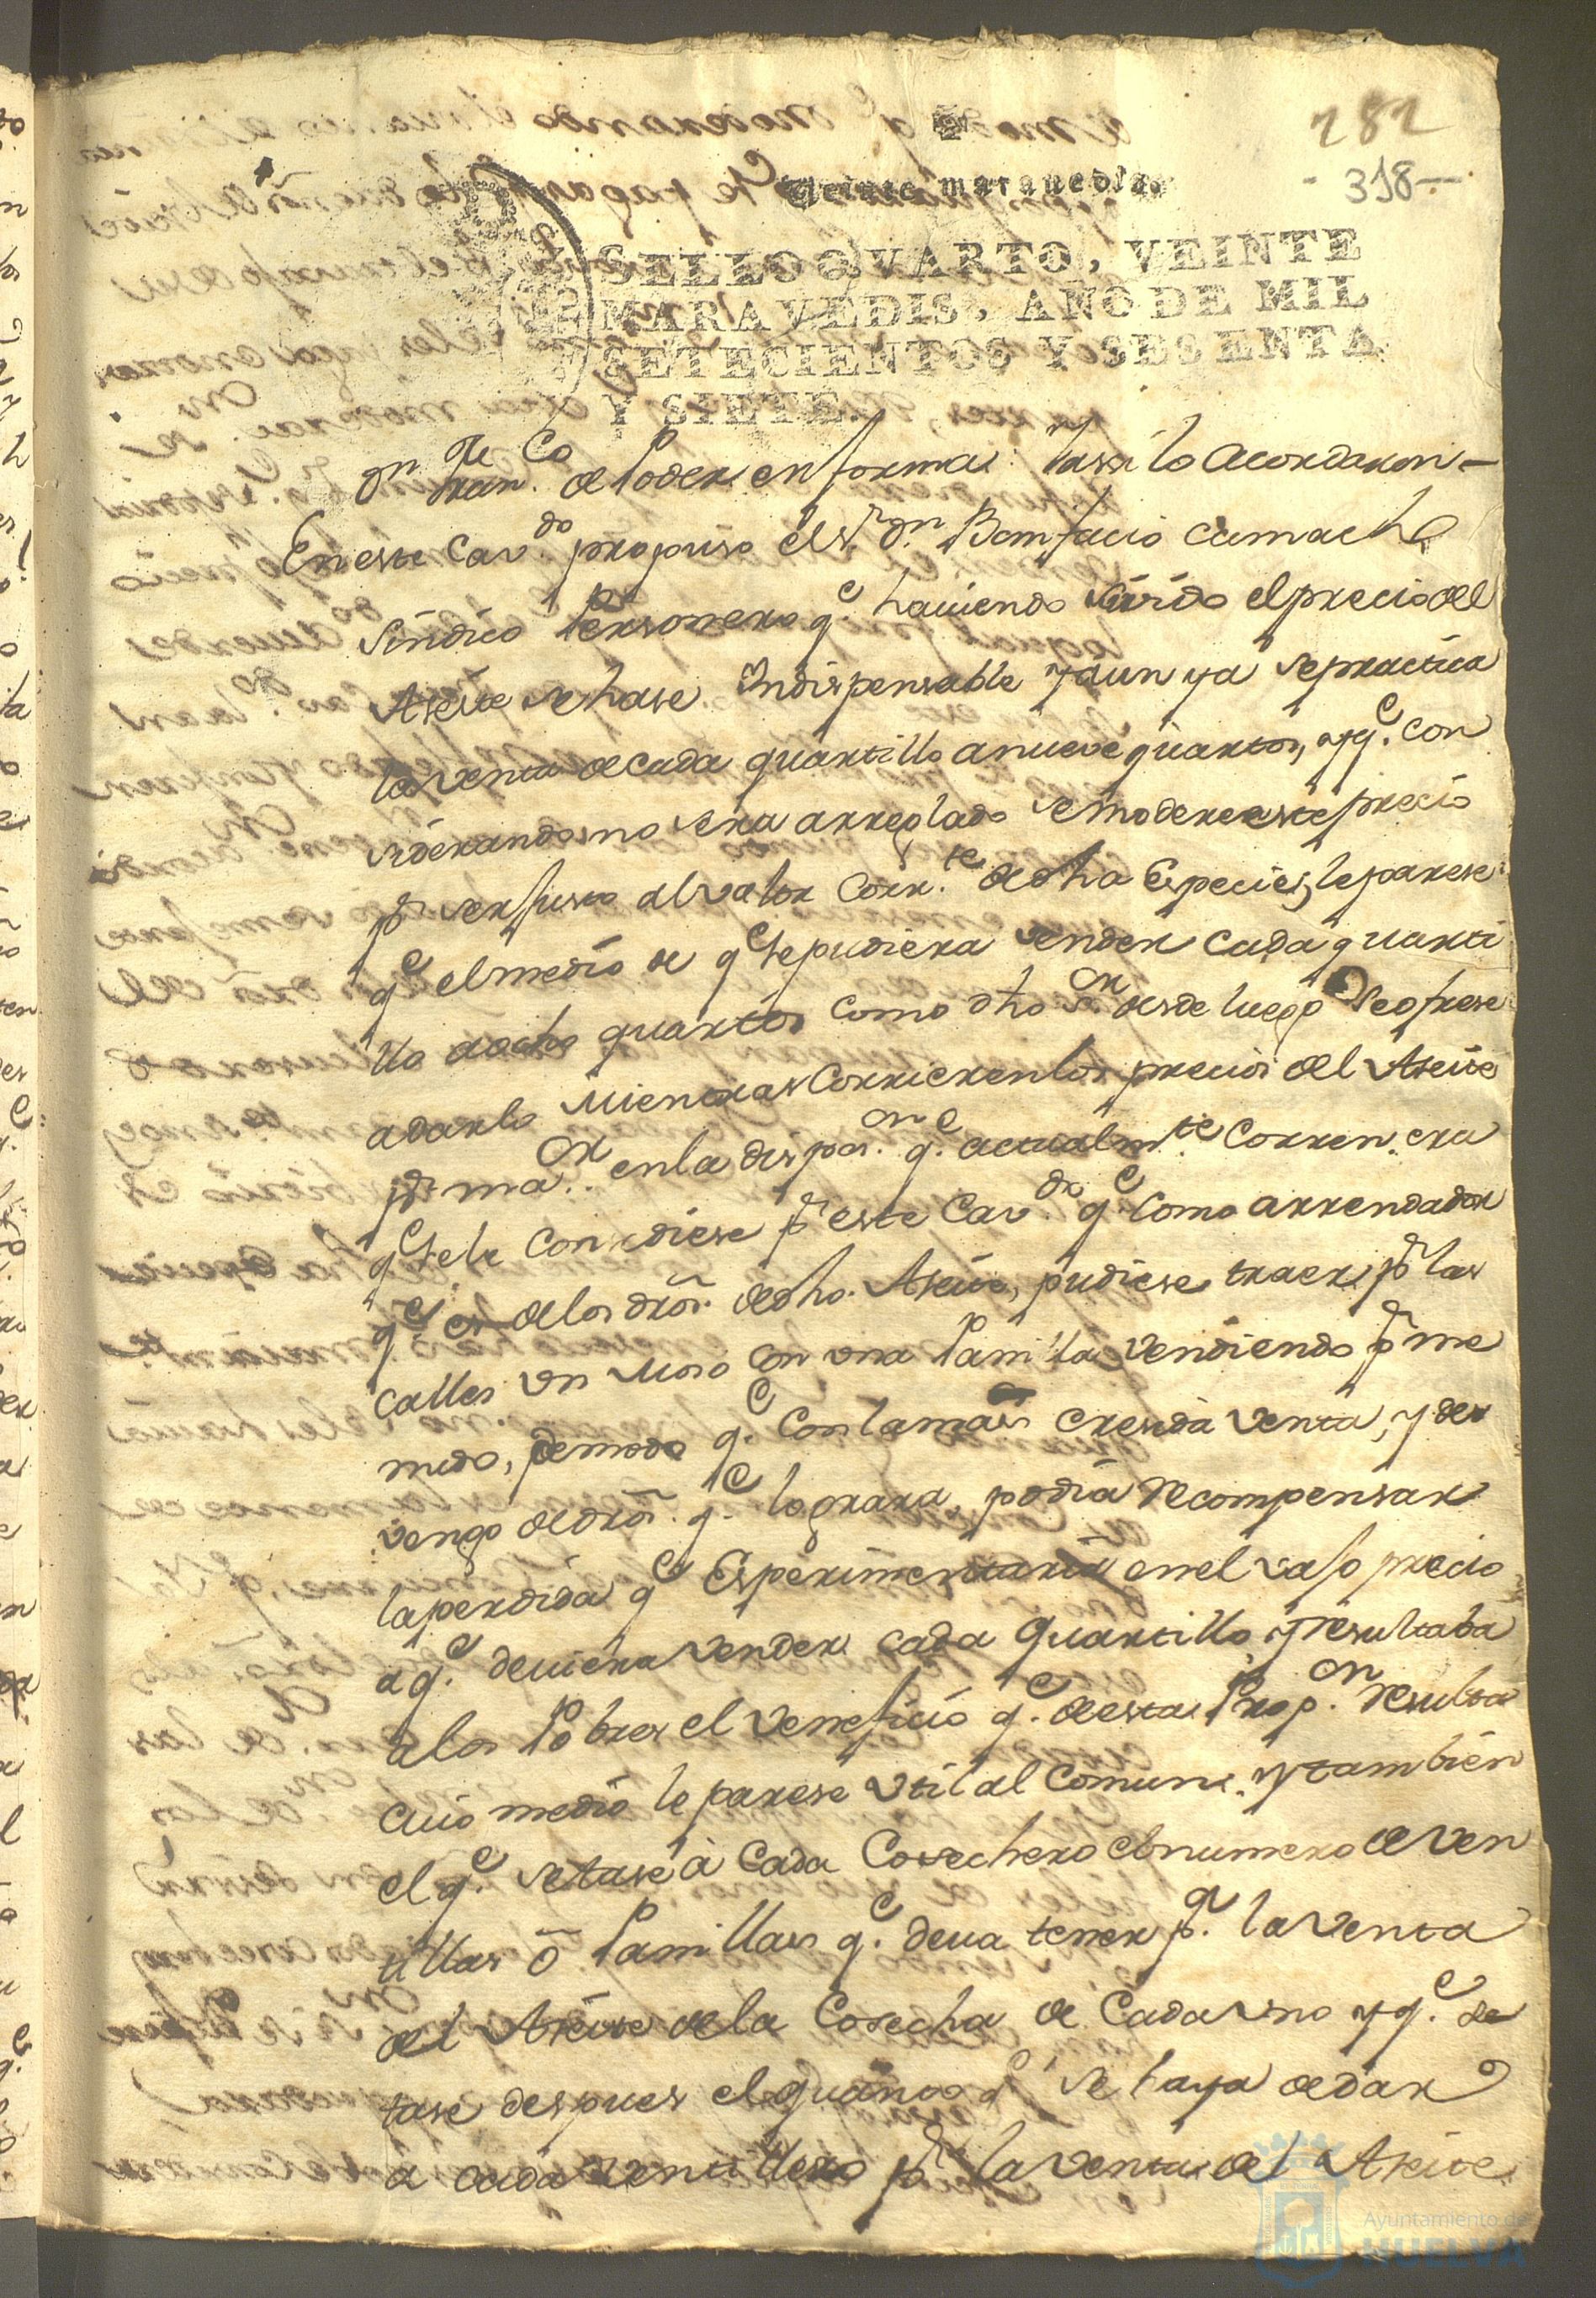 282
- 318 -
Veinte maravedis.
SELLO QVARTO, VEINTE
MARAVEDIS, AÑO DE MIL
SETECIENTOS Y SESENTA
Y SIETE.
Dn Fran.co de Poder en forma: Yassi lo acordaron -
En este Cav.do propuso el Sr. Dn. Bonifacio Camacho
Sindico Personero q.e haviendo subido el precio del
Aseite se hase Indispensable y aun ya se practica
la venta de cada quartillo a nueve quartos, y q.e con
siderando no sera arreglado se modere este precio
pr ser justo al valor Corr.te de dha Especie, le parese
q.e el medio de q.e se pudiera vender cada quarti
llo a ocho quartos como dho Sr desde luego se ofrese
a darlo mientras corrieren los precios del Aseite
pr ma.or en la dispos.on q.e actualm.te corren, era
q.e se le consediese pr este Cav.do q.e como arrendador
q.e es de los dros. de dho. Aseite, pudiese traer pr las
calles un Moso con una Panilla vendiendo pr me
nudo, de modo q.e con la mas cresida venta, y de
vengo de dros. q.e lograra, podia recompensar
la perdida q.e Esperimentaria en el vajo precio
a q.e deviera vender cada quartillo, y resultaba
a los Pobres el veneficio q.e de esta Prop.on resulta
cuio medio le parese util al Comun, y tambien
el q.e se tase à cada Cosechero el numero de ven
tillas ô Panillas q.e deva tener pa. la venta
del Aseite de la Cosecha de cada uno y q.e se
tase despues el quanto q.e se haya de dar
a cada ventillero pr la venta del Aseite
Ayuntamiento de
HUELVA